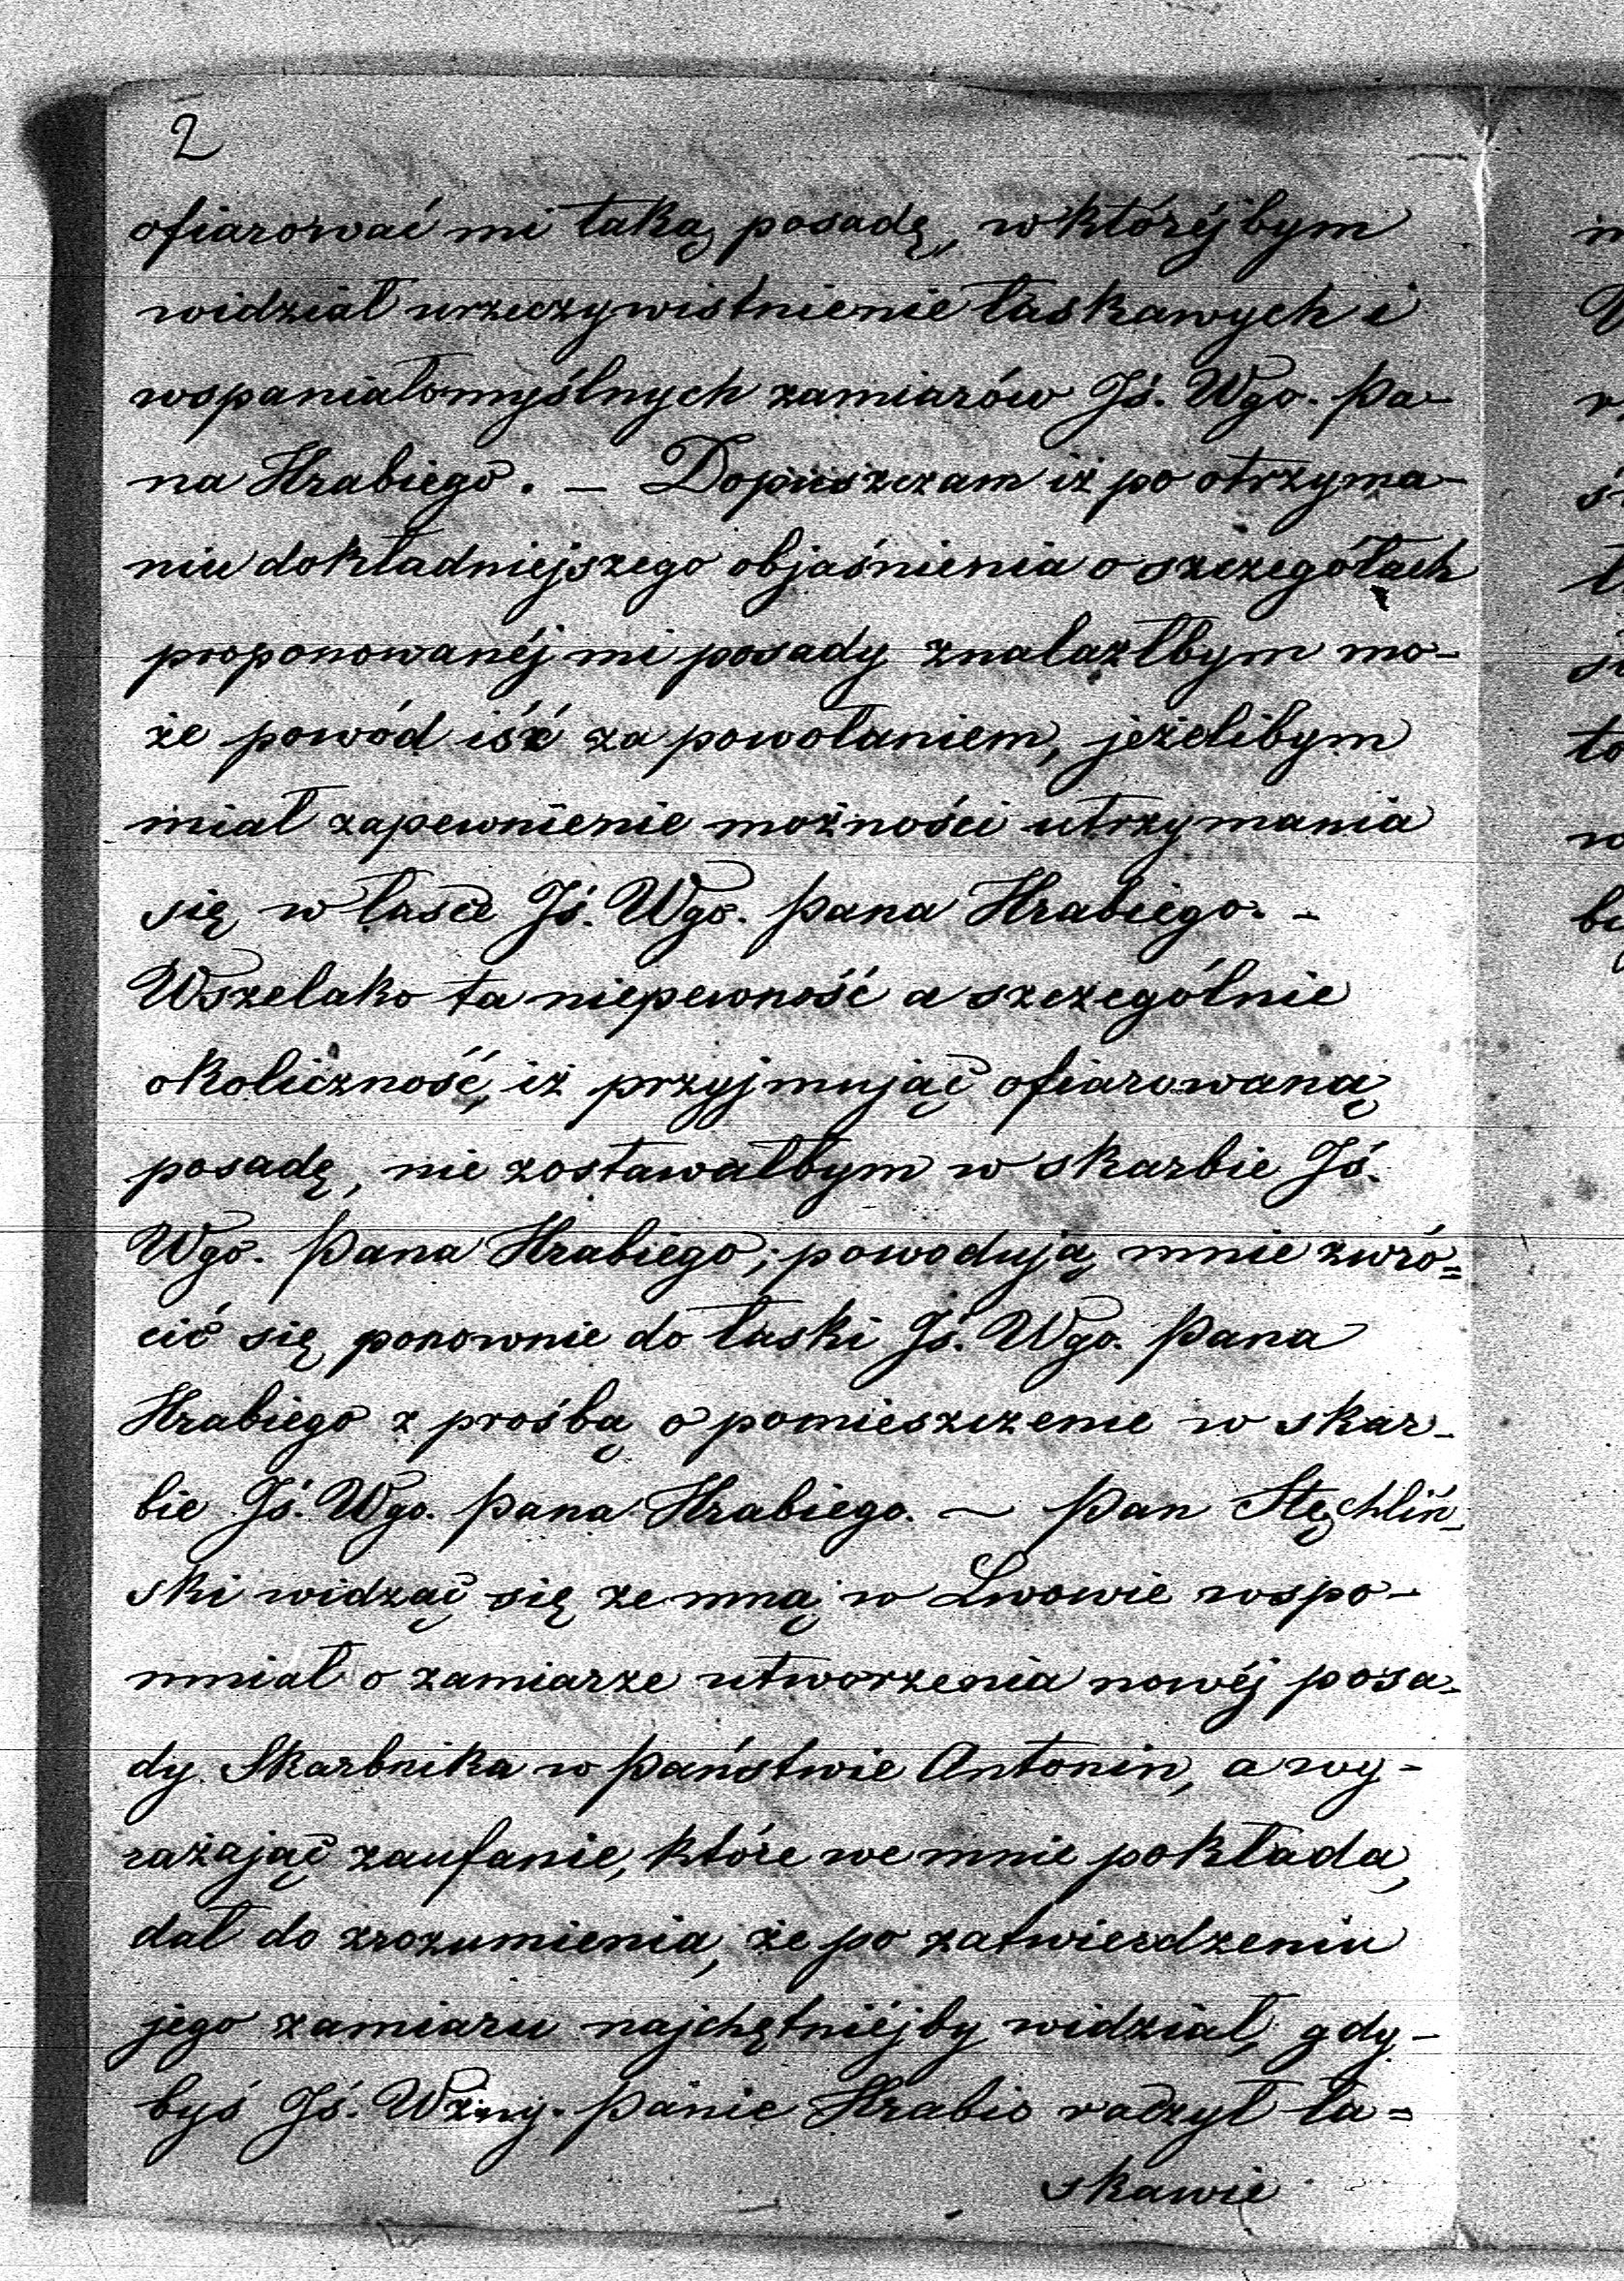 2
ofiarować mi taką posadę, w któréjbym
widział urzeczywistnienie łaskawych i
wspaniałomyślnych zamiarów Jś. Wgo. Pa-
na Hrabiego. — Dopuszczam iż po otrzyma-
niu dokładniejszego objaśnienia o szczegółach
proponowanéj mi posady znalazłbym mo-
że powód iść za powołaniem, jeżelibym
miał zapewnienie możności utrzymania
się w łasce Jś. Wgo. Pana Hrabiego. —
Wszelako ta niepewność a szczególnie
okoliczność, iż przyjmując ofiarowaną
posadę, nie zostawałbym w skarbie Jś.
Wgo. Pana Hrabiego; powodują mnie zwró=
cić się ponownie do łaski Jś. Wgo. Pana
Hrabiego z prośbą o pomieszczenie w skar-
bie Jś. Wgo. Pana Hrabiego. — Pan Stęchliń-
ski widząc się ze mną w Lwowie wspo-
mniał o zamiarze utworzenia nowéj posa-
dy Skarbnika w Państwie Antonin, a wy-
rażając zaufanie, które we mnie pokłada,
dał do zrozumienia, że po zatwierdzeniu
jego zamiaru najchętniéjby widział, gdy-
byś Jś. Wżny. Panie Hrabio raczył ła=
skawie